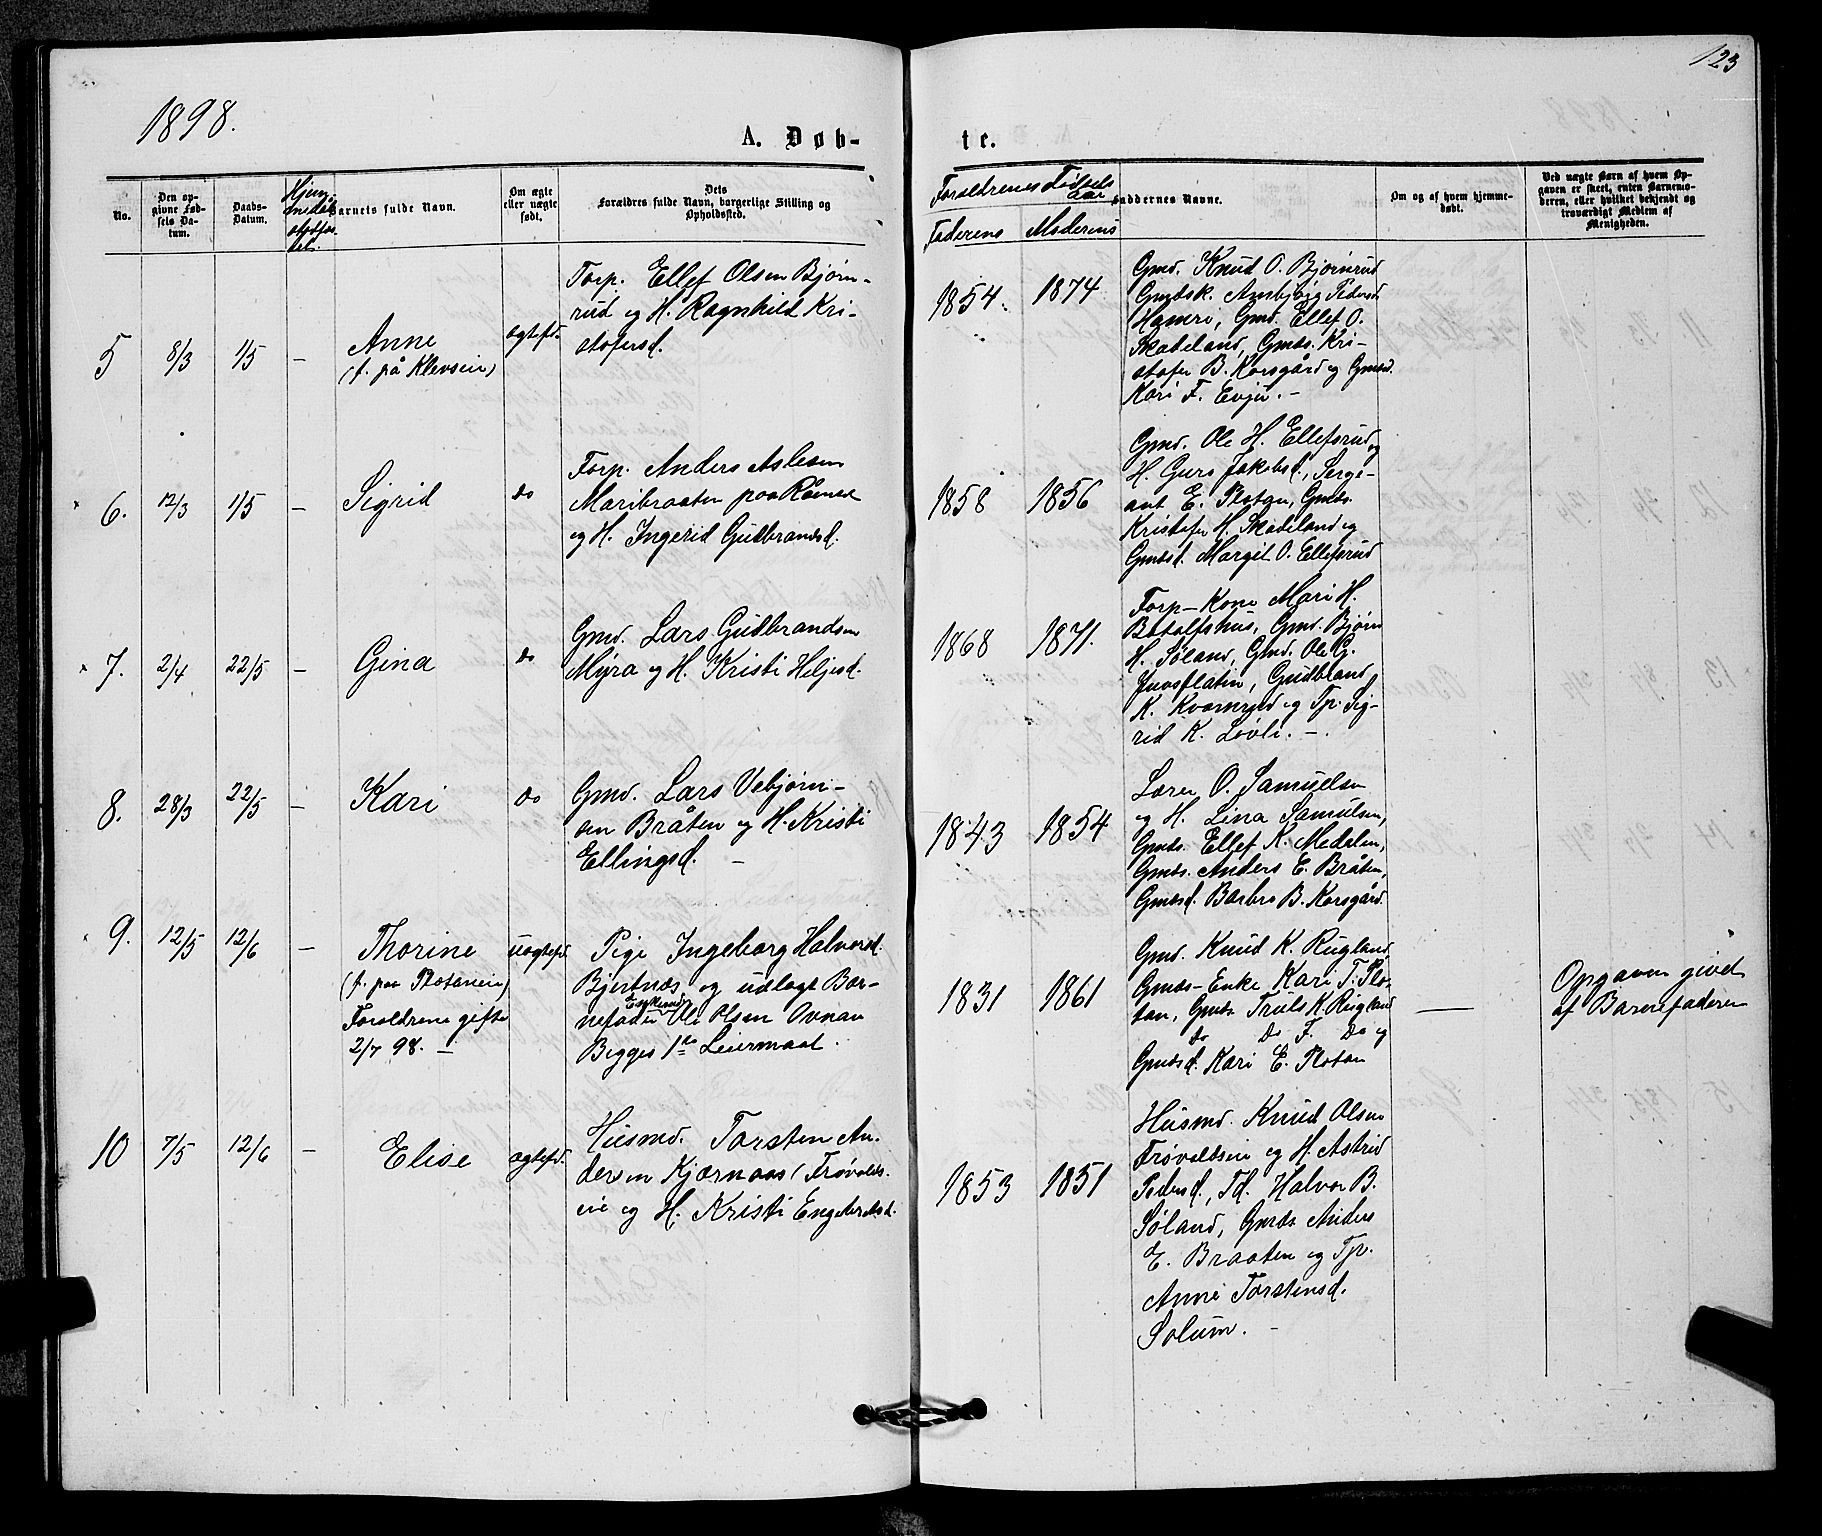 123
1898.
A. Døb-
te.
No.
Den op-
givne Fød-
sels Da-
tum.
Daabs-
Datum.
Barnets fulde Navn.
Om ægte
eller uægte
født.
Dets
Forældres fulde Navn, borgerlige Stilling og
Opholdssted.
Forældrenes Fødsels
aar
Faderens Moderens
Faddernes Navne.
Om og af hvem hjemme-
døbt.
Ved uægte Børn af hvem Op-
gaven er skeet, enten Barnemo-
deren, eller hvilket bekjendt og
troværdigt Medlem af
Menigheden.
5
8/3
1/5
–
Anne
(f. på Klevseie)
ægtefd.
Torp. Ellef Olsen Bjørn-
rud og H. Ragnhild Kri-
stofersd.
1854.
1874
Gmd. Knud O. Bjørnrud
Gmdsk. Ambjørg Pedersd.
Hamri, Gmd. Ellef O.
Skadeland, Gmds. Kri-
stofer B. Korsgård og Gmdsd.
Kari F. Evju. –
6.
12/3
1/5
–
Sigrid
do
Forp. Anders Aslesen
Maribraaten paa Råmen
og H. Ingerid Gudbrandsd.
1858
1856
Gmd. Ole H. Ellefsrud og
H. Guro Jakobsd., Serge-
ant E. Plotan, Gmds.
Kristofer H. Skadeland og
Gmdsd. Margit O. Ellefsrud
7.
2/4
22/5
–
Gina
do
Gmd. Lars Gudbrandsen
Myra og H. Kristi Heljesd.
1868
1871.
Forp-Kone Mari H.
Botolfshus, Gmd. Bjørn
H. Søland, Gmd. Ole G.
Juvsflatin, Gudbrand
K. og Tp. Sig-
rid K. Løvli. –
8.
28/3
22/5
–
Kari
do
Gmd. Lars Vebjørn-
sen Bråten og H. Kristi
Ellingsd. –
1843
1854
Lærer O. Samuelsen
og H. Lina Samulsen,
Gmds. Ellef K. Medalen,
Gmds. Anders E. Bråten,
Gmdsd. Barbro B. Korsgård.
9.
12/5
12/6
–
Thorine
(f. paa Plotaneie)
Forældrene gifte
2/7 98. –
uægtefd.
Pige Ingeborg Halvorsd.
Bjertnæs og udlagt Bar-
nefader Enkemd Ole Olsen Ovnan
Begges 1ste Leiermaal.
1831
1861
Gmd. Knud K. Rugland,
Gmds-Enke Kari T. Plo-
tan, Gmds Truls K. Rugland
do Do F. Do og
Gmdsd. Kari E. Plotan
–
Opgaven givet
af Barnefaderen
10
7/5
12/6
–
Elise
ægtefd.
Husmd. Torsten An-
dersen Kjærnaas (Frøvolds-
eie og H. Kristi Engebretsd.
1853
1851
Husmd. Knud Olsen
Frøvoldseie og H. Astrid
Pedersd., Td. Halvor B.
Søland, Gmds Anders
E. Braaten og Tp.
Anne Torstensd.
Solum. –